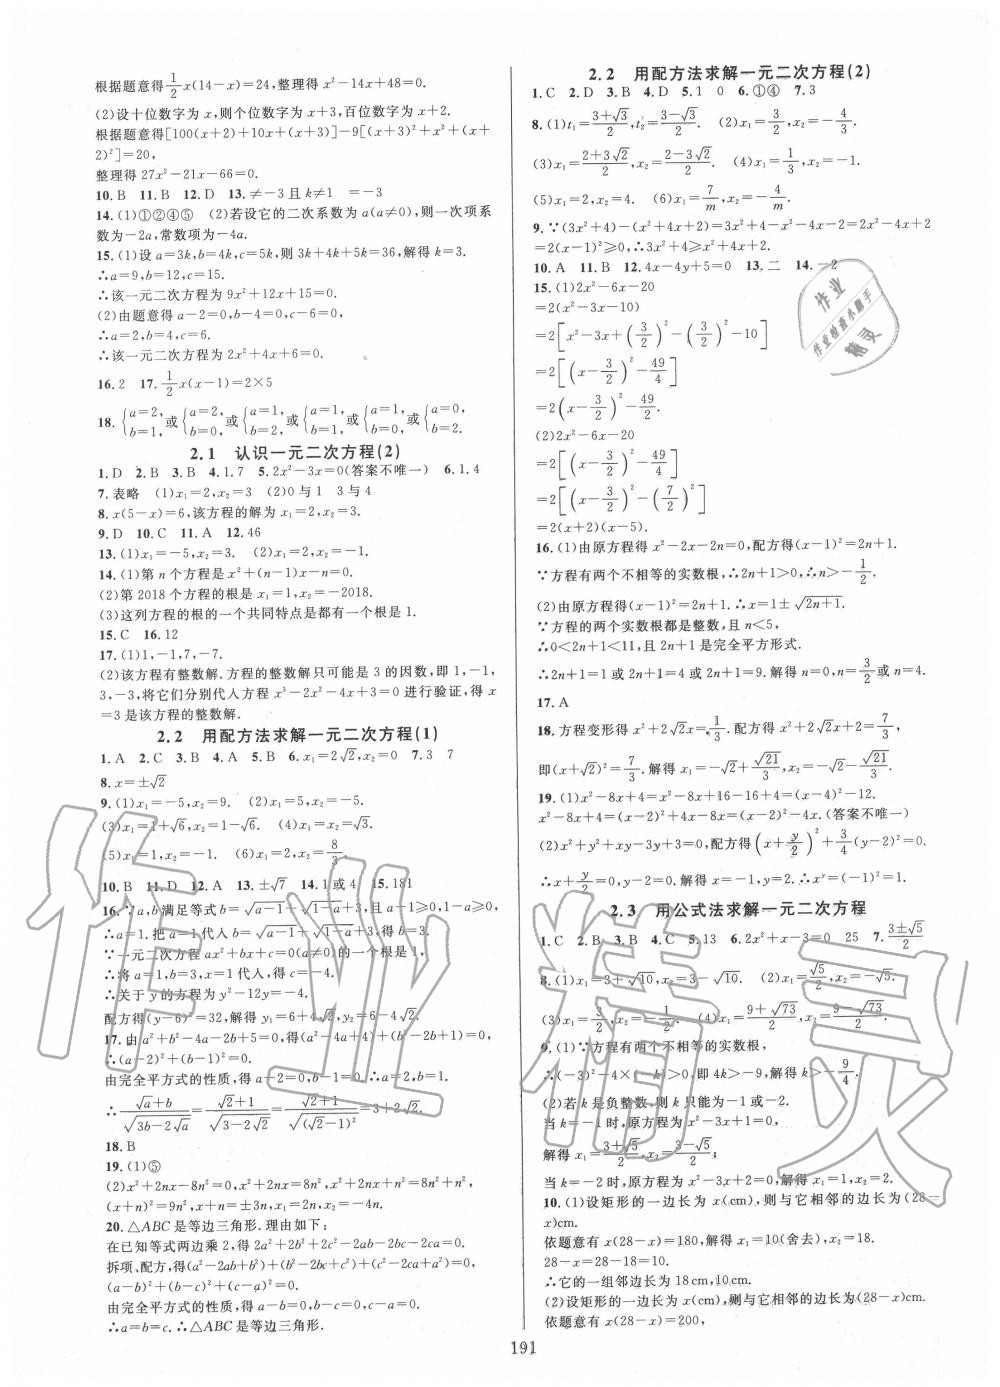 根据题意得\frac{1}{2}x(14-x)=24,整理得 x²-14x+48=0.
(2)设十位数字为 x,则个位数字为 x+3,百位数字为 x+2.
根据题意得[100(x+2)+10x+(x+3)]-9[(x+3)²+x²+(x+
2)²]=20,
整理得 27x²-21x-66=0.
10.B 11.B 12.D 13.≠-3且k≠1 =-3
14.(1)①②④⑤ (2)若设它的二次系数为 a(a≠0),则一次项系
数为-2a,常数项为-4a.
15.(1)设 a=3k,b=4k,c=5k,则 3k+4k+5k=36,解得 k=3.
∴a=9,b=12,c=15.
∴该一元二次方程为 9x²+12x+15=0.
(2)由题意得 a-2=0,b-4=0,c-6=0,
∴a=2,b=4,c=6.
∴该一元二次方程为 2x²+4x+6=0.
16.2 17.\frac{1}{2}x(x-1)=2×5
18.{a=2, b=1,或{a=2, b=0,或{a=1, b=2,或{a=1, b=0,或{a=0, b=2.
2.1 认识一元二次方程(2)
1.D 2.B 3.B 4.1.7 5.2x²-3x=0(答案不唯一) 6.1,4
7.表略 (1)x₁=2,x₂=3 (2)0与1 3与4
8.x(5-x)=6,该方程的解为 x₁=2,x₂=3.
9.D 10.C 11.A 12.46
13.(1)x₁=-5,x₂=3. (2)x₁=2,x₂=-1.
14.(1)第 n 个方程是 x²+(n-1)x-n=0.
(2)第 2018 个方程的根是 x₁=1,x₂=-2018.
(3)这列方程的根的一个共同特点是都有一个根是 1.
15.C 16.12
17.(1)1,-1,7,-7.
(2)该方程有整数解.方程的整数解只可能是 3 的因数,即 1,-1,
3,-3,将它们分别代入方程 x³-2x²-4x+3=0 进行验证,得 x
=3是该方程的整数解.
2.2 用配方法求解一元二次方程(1)
1.A 2.C 3.B 4.A 5.B 6.x₁=2√2,x₂=0 7.3 7
8.x=±√2
9.(1)x₁=-5,x₂=9. (2)x₁=5,x₂=-1.
(3)x₁=1+√6,x₂=1-√6. (4)x₁=3,x₂=-1.
(5)x₁=1,x₂=-1. (6)x₁=2,x₂=\frac{8}{3}.
10.B 11.D 12.A 13.±√7 14.1或4 15.181
16.∵a,b满足等式b=√(a-1)+√(1-a)+3,∴a-1≥0,1-a≥0,
∴a=1.把 a=1代入b=√(a-1)+√(1-a)+3,得b=3.
∵一元二次方程 ax²+bx+c=0(a≠0)的根是1,
∴a+b+c=0,将 a=1,b=3代入,得 c=-4.
∴关于 y 的方程为 y²-12y=-4.
配方得(y-6)²=32,解得 y₁=6+4√2,y₂=6-4√2.
17.由a²+b²-4a-2b+5=0,得(a²-4a+4)+(b²-2b+1)=0,
∴(a-2)²+(b-1)²=0.
由完全平方式的性质,得 a-2=0,b-1=0.∴a=2,b=1.
∴\frac{√(a+b)}{√(3b-2√a)}=\frac{√2+1}{√(3-2√2)}=\frac{√2+1}{√((√2-1)²)}=3+2√2.
18.B
19.(1)⑤
(2)x²+2nx-8n²=0,x²+2nx=8n²,x²+2nx+n²=8n²+n²,
(x+n)²=9n²,x+n=±3n,x₁=-4n,x₂=2n.
20.△ABC是等边三角形.理由如下:
在已知等式两边乘2,得 2a²+2b²+2c²-2ab-2bc-2ac=0.
拆项、配方,得(a²-2ab+b²)+(b²-2bc+c²)+(c²-2ac+a²)=0,
(a-b)²+(b-c)²+(c-a)²=0.
由完全平方式的性质,得 a-b=0,b-c=0,c-a=0.
∴a=b=c.∴△ABC是等边三角形.
2.2 用配方法求解一元二次方程(2)
1.C 2.D 3.B 4.D 5.1 0 6.①④ 7.3
8.(1)t₁=\frac{3+√3}{2},t₂=\frac{3-√3}{2}. (2)x₁=1,x₂=-\frac{4}{3}.
(3)x₁=\frac{2+3√2}{2},x₂=\frac{2-3√2}{2}. (4)x₁=\frac{1}{3},x₂=-1.
(5)x₁=2,x₂=4. (6)x₁=\frac{7}{m},x₂=-\frac{4}{m}.
9.∵(3x²+4)-(x²+4x+2)=3x²+4-x²-4x-2=2x²-4x+2
=2(x-1)²≥0,∴3x²+4≥x²+4x+2.
10.A 11.B 12.4x-4y+5=0 13.二 14.-2
15.(1)2x²-6x-20
=2(x²-3x-10)
=2[x²-3x+(\frac{3}{2})²-(\frac{3}{2})²-10]
=2[(x-\frac{3}{2})²-\frac{49}{4}]
=2(x-\frac{3}{2})²-\frac{49}{2}.
(2)2x²-6x-20
=2[(x-\frac{3}{2})²-\frac{49}{4}]
=2[(x-\frac{3}{2})²-(\frac{7}{2})²]
=2(x+2)(x-5).
16.(1)由原方程得 x²-2x-2n=0,配方得(x-1)²=2n+1.
∵方程有两个不相等的实数根,∴2n+1>0,∴n>-\frac{1}{2}.
(2)由原方程得(x-1)²=2n+1.∴x=1±√(2n+1).
∵方程的两个实数根都是整数,且 n<5,
∴0<2n+1<11,且 2n+1是完全平方形式.
∴2n+1=1或 2n+1=4或 2n+1=9,解得 n=0或 n=\frac{3}{2}或 n=4.
17.A
18.方程变形得 x²+2√2x=\frac{1}{3}.配方得 x²+2√2x+2=\frac{7}{3},
即(x+√2)²=\frac{7}{3}.解得 x₁=-√2+\frac{√21}{3},x₂=-√2-\frac{√21}{3}.
19.(1)x²-8x+4=x²-8x+16-16+4=(x-4)²-12.
x²-8x+4=(x-2)²+4x-8x=(x-2)²-4x.(答案不唯一)
(2)x²+y²+xy-3y+3=0,配方得(x+\frac{y}{2})²+\frac{3}{4}(y-2)²=0.
∴x+\frac{y}{2}=0,y-2=0.解得 x=-1,y=2.∴xʸ=(-1)²=1.
2.3 用公式法求解一元二次方程
1.C 2.B 3.B 4.C 5.13 6.2x²+x-3=0 25 7.\frac{3±√5}{2}
8.(1)x₁=3+√10,x₂=3-√10. (2)x₁=\frac{√5}{2},x₂=-√5.
(3)x₁=\frac{3}{2},x₂=-\frac{1}{2}. (4)x₁=\frac{9+√73}{2},x₂=\frac{9-√73}{2}.
9.(1)∵方程有两个不相等的实数根,
∴(-3)²-4×(-k)>0,即 4k>-9,解得 k>-\frac{9}{4}.
(2)若 k 是负整数,则 k 只能为-1或-2.
当 k=-1时,原方程为 x²-3x+1=0,
解得 x₁=\frac{3+√5}{2},x₂=\frac{3-√5}{2};
当 k=-2时,原方程为 x²-3x+2=0,解得 x₁=1,x₂=2.
10.(1)设矩形的一边长为 x(cm),则与它相邻的边长为(28-
x)cm.
依题意有 x(28-x)=180,解得 x₁=10(舍去),x₂=18.
28-x=28-18=10.
∴它的一组邻边长为 18cm,10cm.
(2)设矩形的一边长为 x(cm),则与它相邻的边长为(28-x)cm,
依题意有 x(28-x)=200,
191
作业
作业检查小助手
精灵
作业精灵